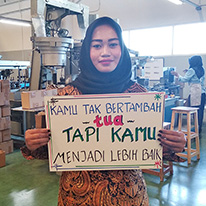 KAMU TAK BERTAMBAH
- tua -
TAPI KAMU
MENJADI LEBIH BAIK